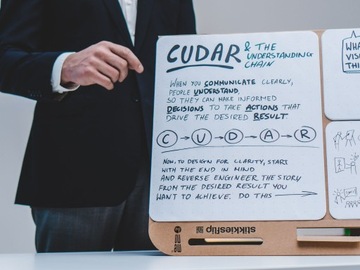 CUDAR & THE
UNDERSTANDING
CHAIN
WHEN YOU COMMUNICATE CLEARLY,
PEOPLE UNDERSTAND,
SO THEY CAN MAKE INFORMED
DECISIONS TO TAKE ACTIONS THAT
DRIVE THE DESIRED RESULT
C → U → D → A → R
NOW, TO DESIGN FOR CLARITY, START
WITH THE END IN MIND
AND REVERSE ENGINEER THE STORY
FROM THE DESIRED RESULT YOU
WANT TO ACHIEVE. DO THIS
WHA
VIS
THI
stikkiesflip